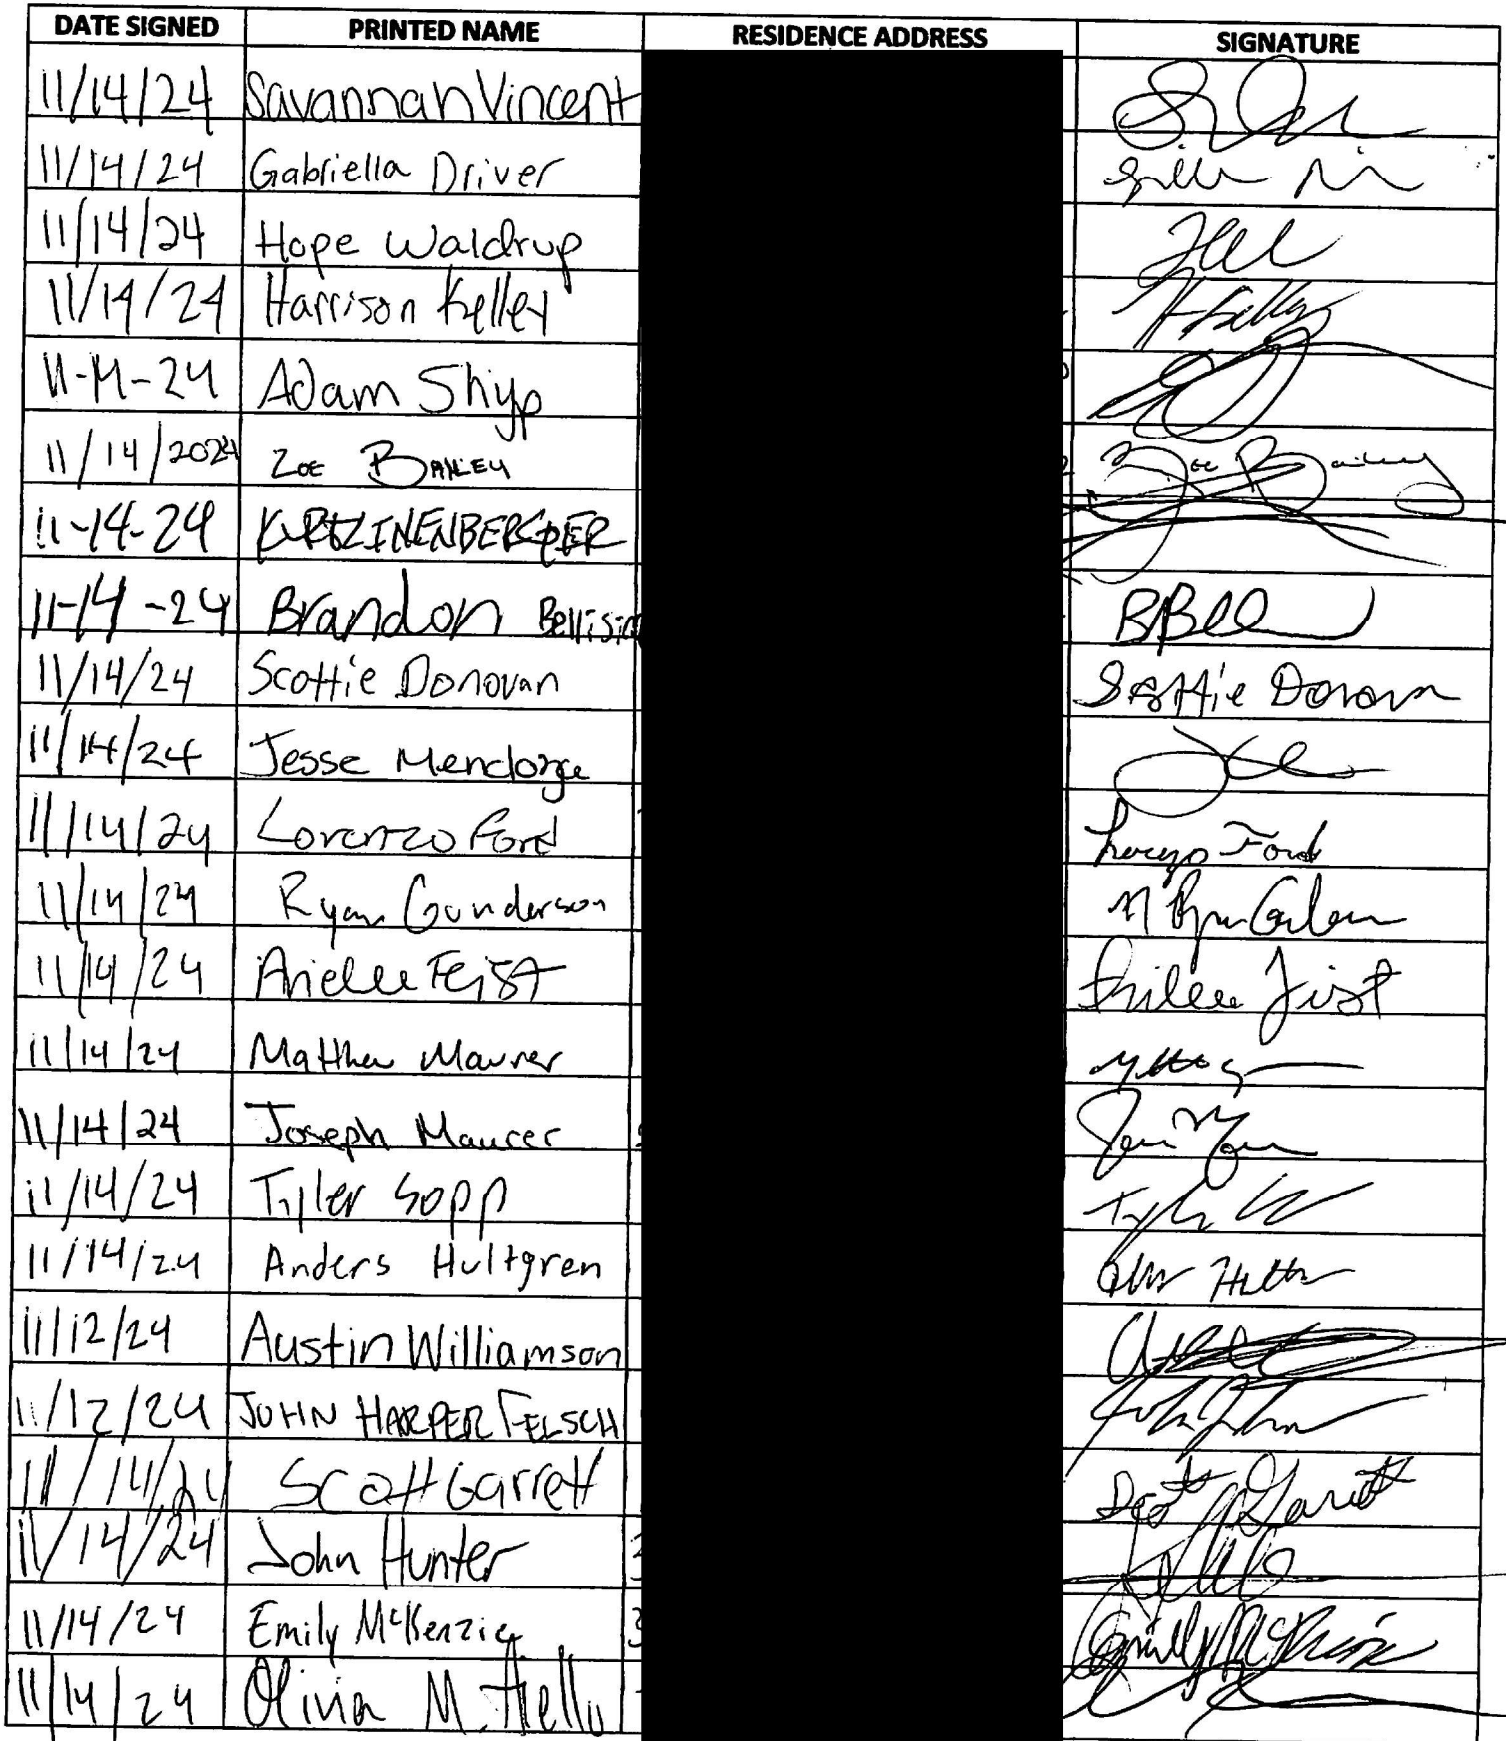 DATE SIGNED PRINTED NAME RESIDENCE ADDRESS SIGNATURE
11/14/24 Savannah Vincent
11/14/24 Gabriella Driver
11/14/24 Hope Waldrup
11/14/24 Harrison Kelley HKelley
11-14-24 Adam Shyp
11/14/2024 ZOE BAILEY Zoe Bailey
11-14-24 KURT LINENBERGER
11-14-24 Brandon BBell
11/14/24 Scottie Donovan Scottie Donovan
11/14/24 Jesse
11/14/24 Lorenzo Ford Lorenzo Ford
11/14/24 Ryan Gunderson
11/14/24 Arielle Feist
11/14/24 Matthew Maurer
11/14/24 Joseph Maurer
11/14/24 Tyler Sopp
11/14/24 Anders Hultgren
11/12/24 Austin Williamson
11/12/24 JOHN HARPER FELSCH
11/14/24 Scott Garrett Scott Garrett
11/14/24 John Hunter
11/14/24 Emily McKenzie Emily McKenzie
11/14/24 Olivia M.